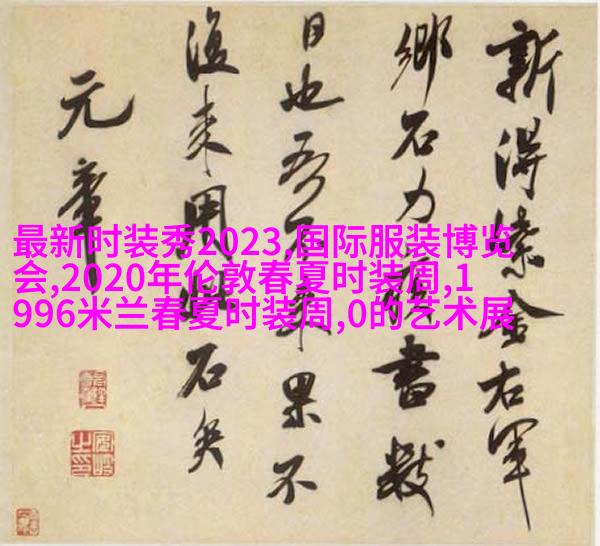 新得紫金右軍
鄉石力疾書數
日也吾不来果不
復来用此石矣
元章
最新时装秀2023,国际服装博览
会,2020年伦敦春夏时装周,1
996米兰春夏时装周,0的艺术展